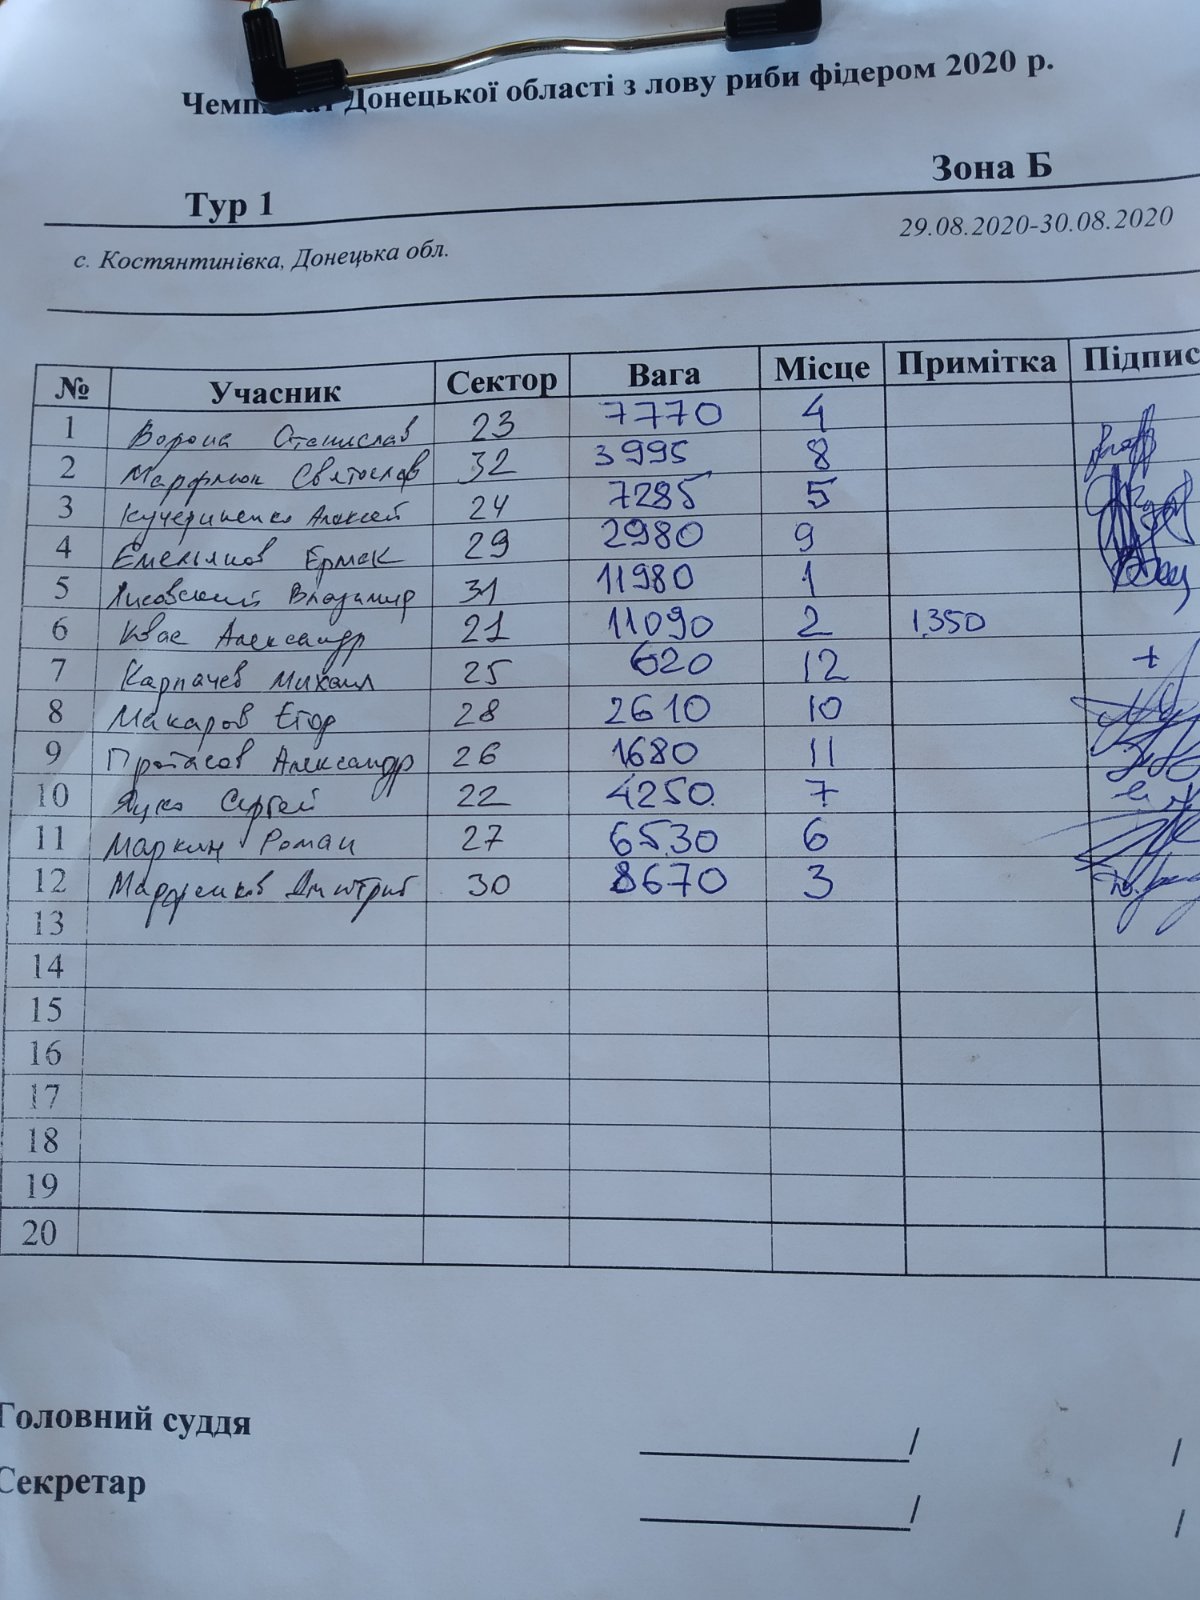 Чемпіонат Донецької області з лову риби фідером 2020 р.
Зона Б
Тур 1
29.08.2020-30.08.2020
с. Костянтинівка, Донецька обл.
№ Учасник Сектор Вага Місце Примітка Підпис
1 Ворона Станислав 23 7770 4
2 Святослав 32 3995 8
3 Кучериненко Алексей 24 7285 5
4 Емельянов Ермак 29 2980 9
5 Лисовский Владимир 31 11980 1
6 Квас Александр 21 11090 2 1.350
7 Карпачев Михаил 25 620 12 +
8 Макаров Егор 28 2610 10
9 Протасов Александр 26 1680 11
10 Яцко Сергей 22 4250 7
11 Маркин Роман 27 6530 6
12 Марфенков Дмитрий 30 8670 3
13
14
15
16
17
18
19
20
Головний суддя / /
Секретар / /